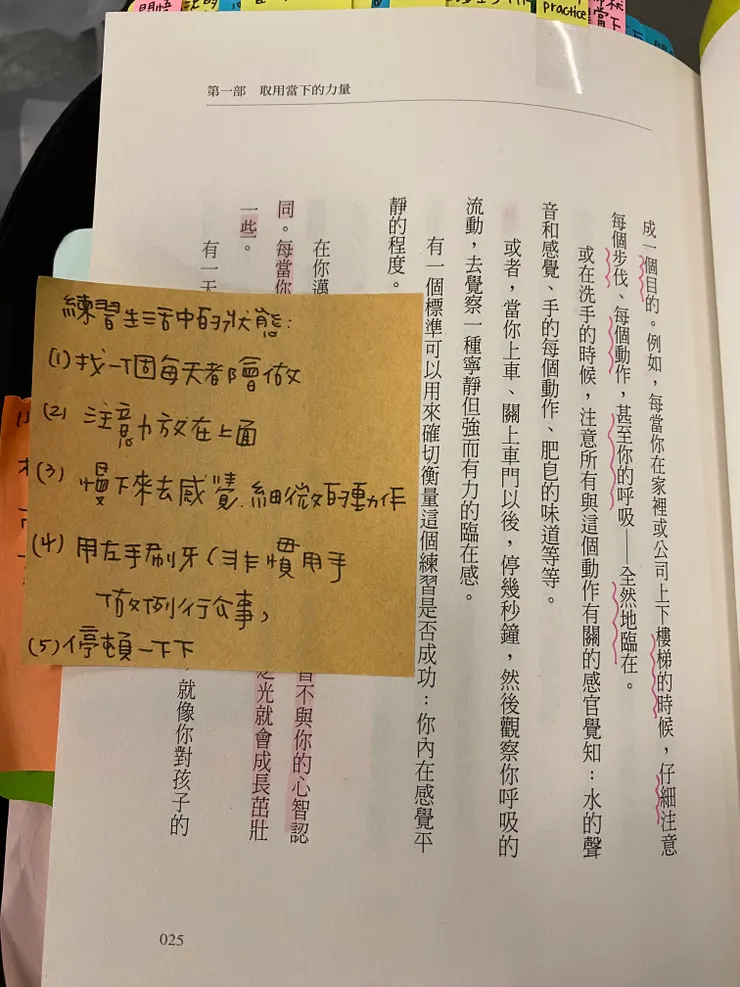 practice
第一部 取用當下的力量
成一個目的。例如，每當你在家裡或公司上下樓梯的時候，仔細注意
每個步伐、每個動作，甚至你的呼吸——全然地臨在。
或在洗手的時候，注意所有與這個動作有關的感官覺知：水的聲
音和感覺、手的每個動作、肥皂的味道等等。
或者，當你上車、關上車門以後，停幾秒鐘，然後觀察你呼吸的
流動，去覺察一種寧靜但強而有力的臨在感。
有一個標準可以用來確切衡量這個練習是否成功：你內在感覺平
靜的程度。
在你邁
不與你的心智認
同。每當你
之光就會成長茁壯
一些。
有一天
，就像你對孩子的
練習生活中的狀態：
(1) 找一個每天都會做
(2) 注意力放在上面
(3) 慢下來去感覺.細微的動作
(4) 用左手刷牙(非慣用手
做例行公事，
(5) 停頓一下下
025